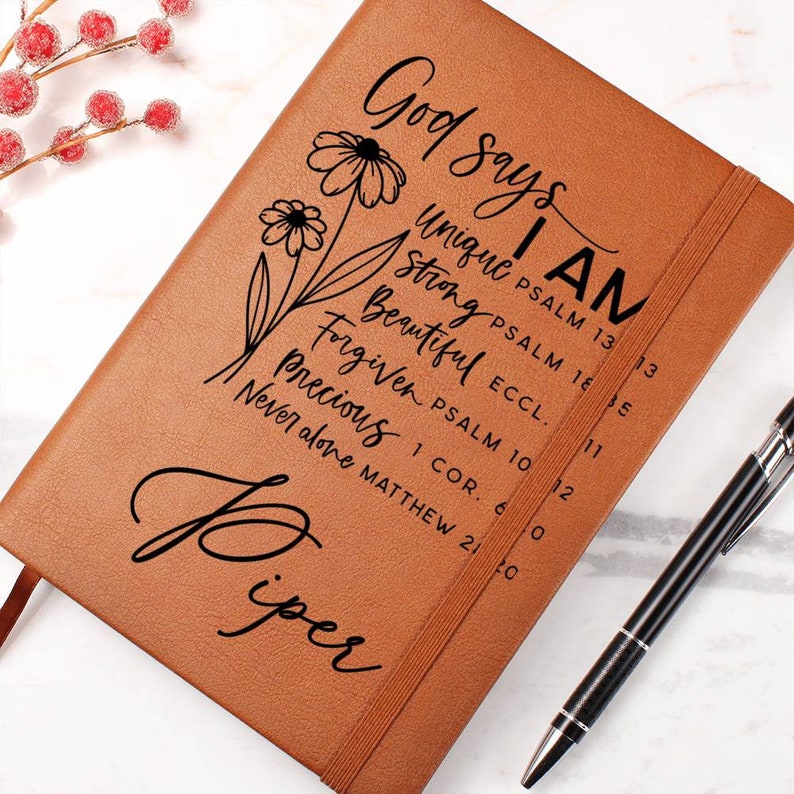 God says
I AM
Unique PSALM 13 13
Strong PSALM 18 35
Beautiful ECCL. 11
Forgiven PSALM 10 12
Precious 1 COR. 6 0
Never alone MATTHEW 2 20
Piper